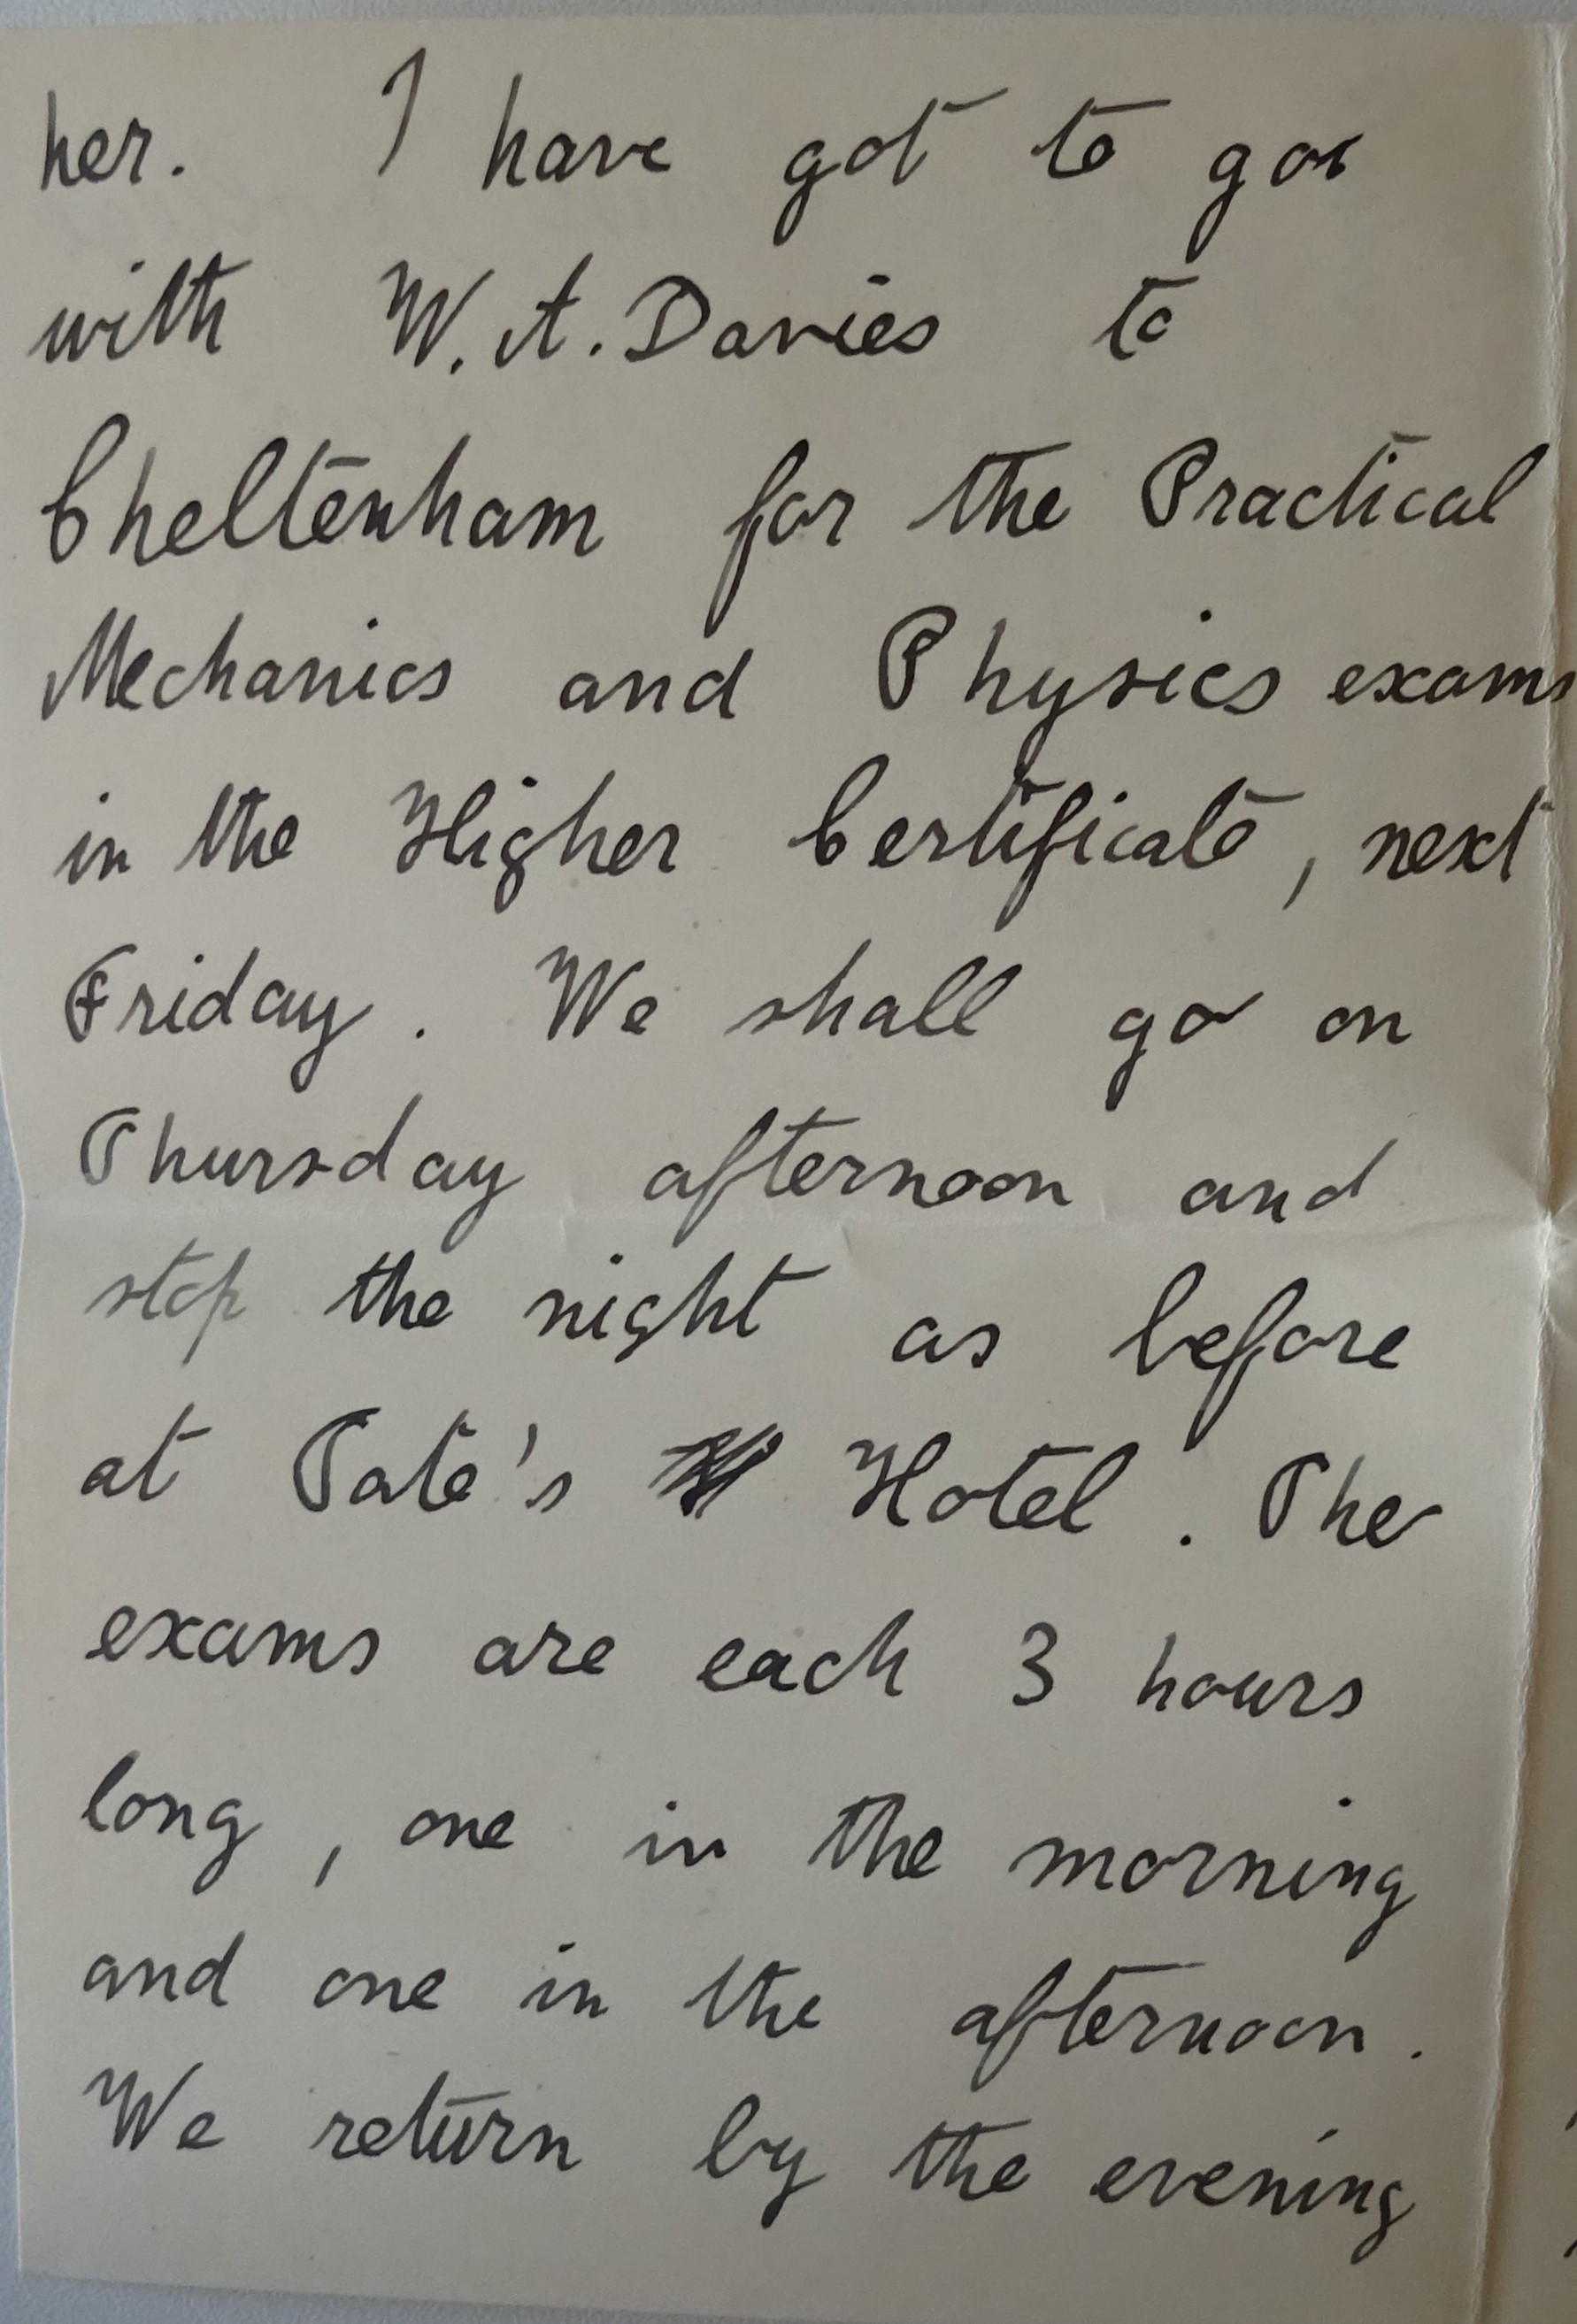 her. I have got to go
with W. A. Davies to
Cheltenham for the Practical
Mechanics and Physics exams
in the Higher Certificate, next
Friday. We shall go on
Thursday afternoon and
stop the night as before
at Tate's Hotel. The
exams are each 3 hours
long, one in the morning
and one in the afternoon.
We return by the evening